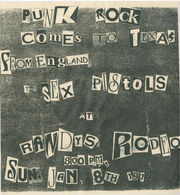 PUNK ROCK
COMES TO TEXAS
FROM ENGLAND
SEX PISTOLS
AT
RANDYS RODEO
8:00 P.M.
SUN. JAN. 8TH 197